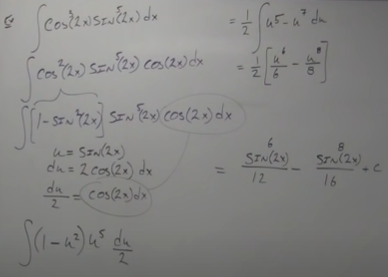 ∫cos³(2x) sin⁵(2x) dx
∫cos²(2x) sin⁵(2x) cos(2x) dx
∫[1-sin²(2x)] sin⁵(2x) cos(2x) dx
u = sin(2x)
du = 2cos(2x) dx
du/2 = cos(2x) dx
∫(1-u²) u⁵ du/2
= 1/2 ∫u⁵-u⁷ du
= 1/2 [u⁶/6 - u⁸/8]
= sin⁶(2x)/12 - sin⁸(2x)/16 + c